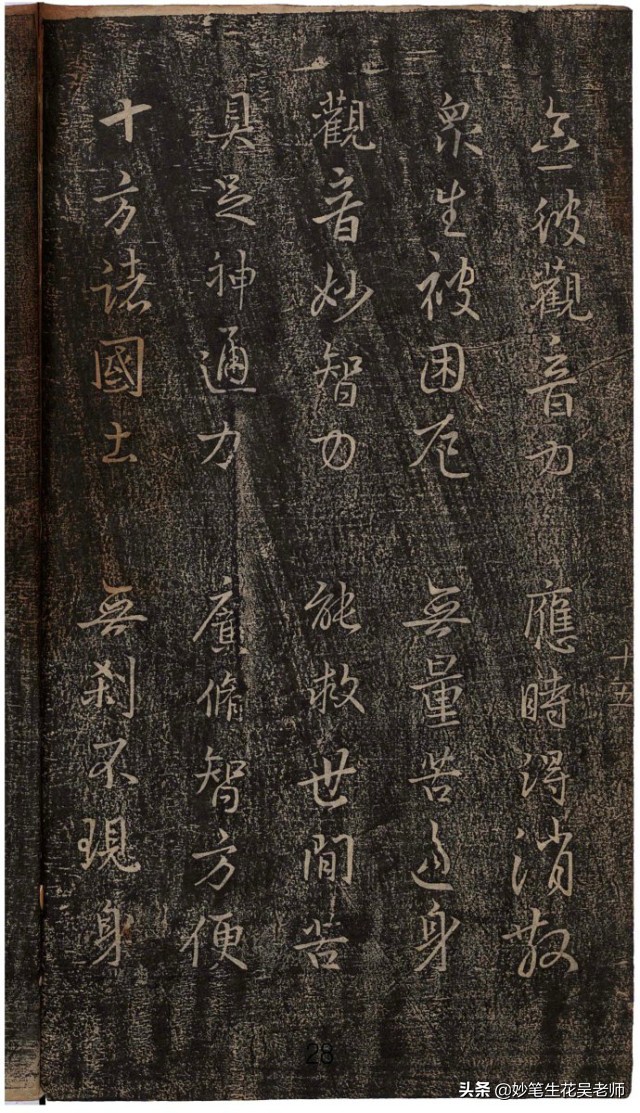 念彼觀音力 應時得消散
衆生被困厄 無量苦逼身
觀音妙智力 能救世間苦
具足神通力 廣修智方便
十方諸國土 無刹不現身
十五
28
头条 @妙笔生花吴老师